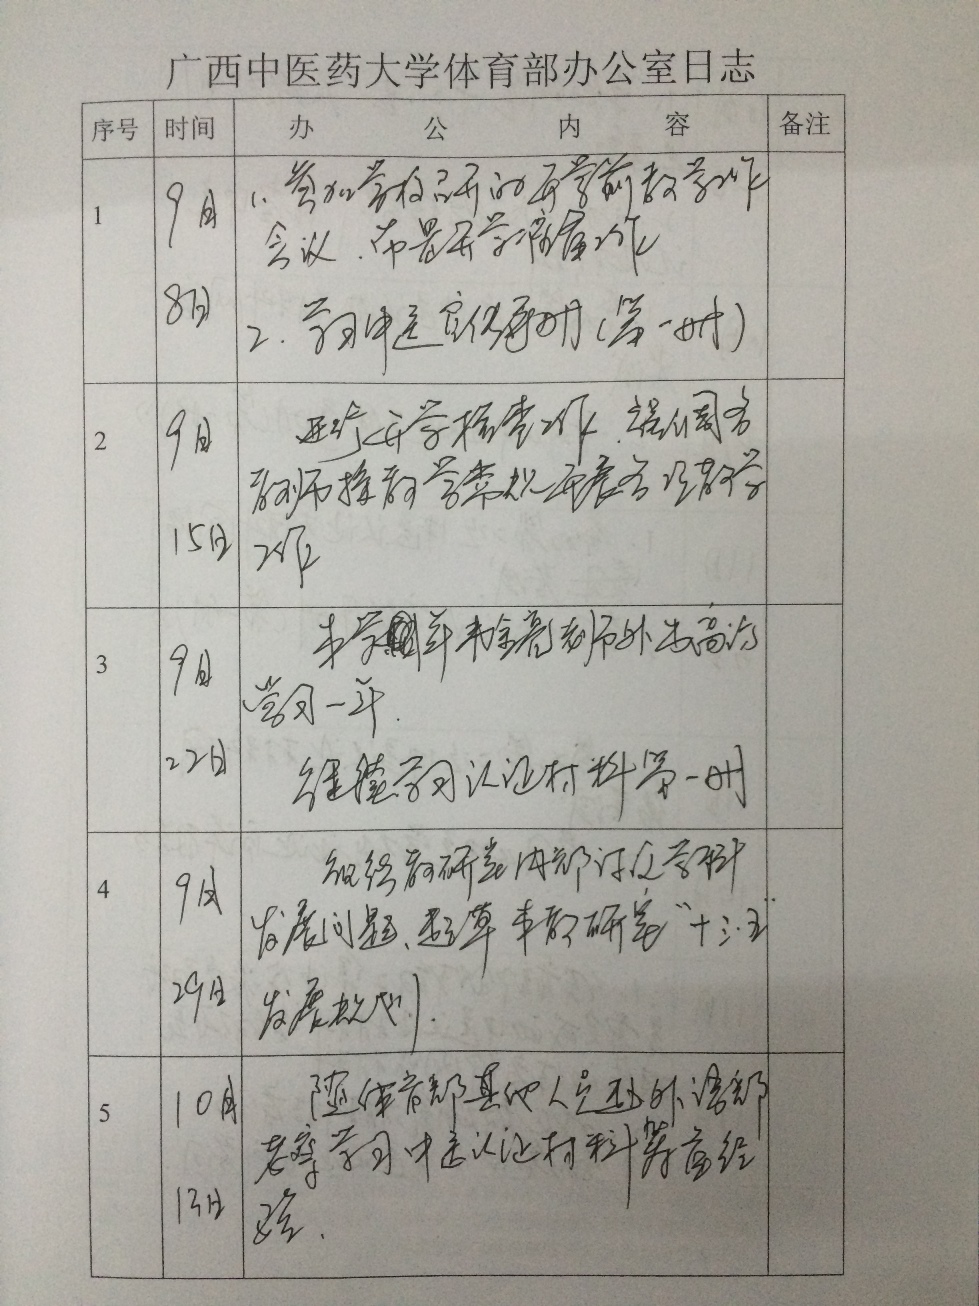 广西中医药大学体育部办公室日志
序号 时间 办公内容 备注
1
9月
8日
1. 参加学校召开的开学前教学工作
会议、布置开学准备工作
2. 学习中医宣传手册(第一册)
2
9月
15日
进行开学检查工作、
教师按教学常规开展各项教学
工作
3
9月
22日
本学年 教师外出高访
学习一年.
继续学习认证材料第一册
4
9月
29日
组织教研室内部讨论学科
发展问题、起草本教研室“十三·五”
发展规划.
5
10月
13日
随体育部其他人员赴外语部
考察学习中医认证材料筹备经
验.